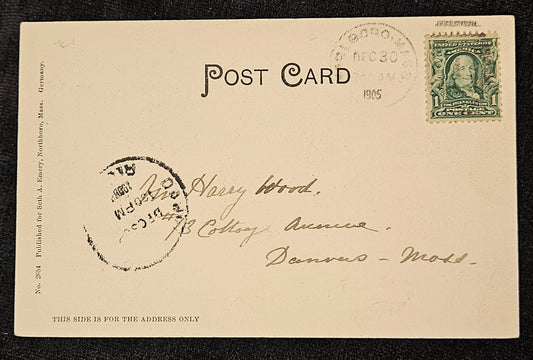 POST CARD
BORO, MASS
DEC 30
1905
UNITED STATES OF AMERICA
FRANKLIN
1 POSTAGE 1
ONE CENT
Harry Wood.
#3 Cottage Avenue.
Danvers - Mass.
30 PM
DEC 30
No. 2054 Published for Seth A. Emery, Northboro, Mass. Germany.
THIS SIDE IS FOR THE ADDRESS ONLY